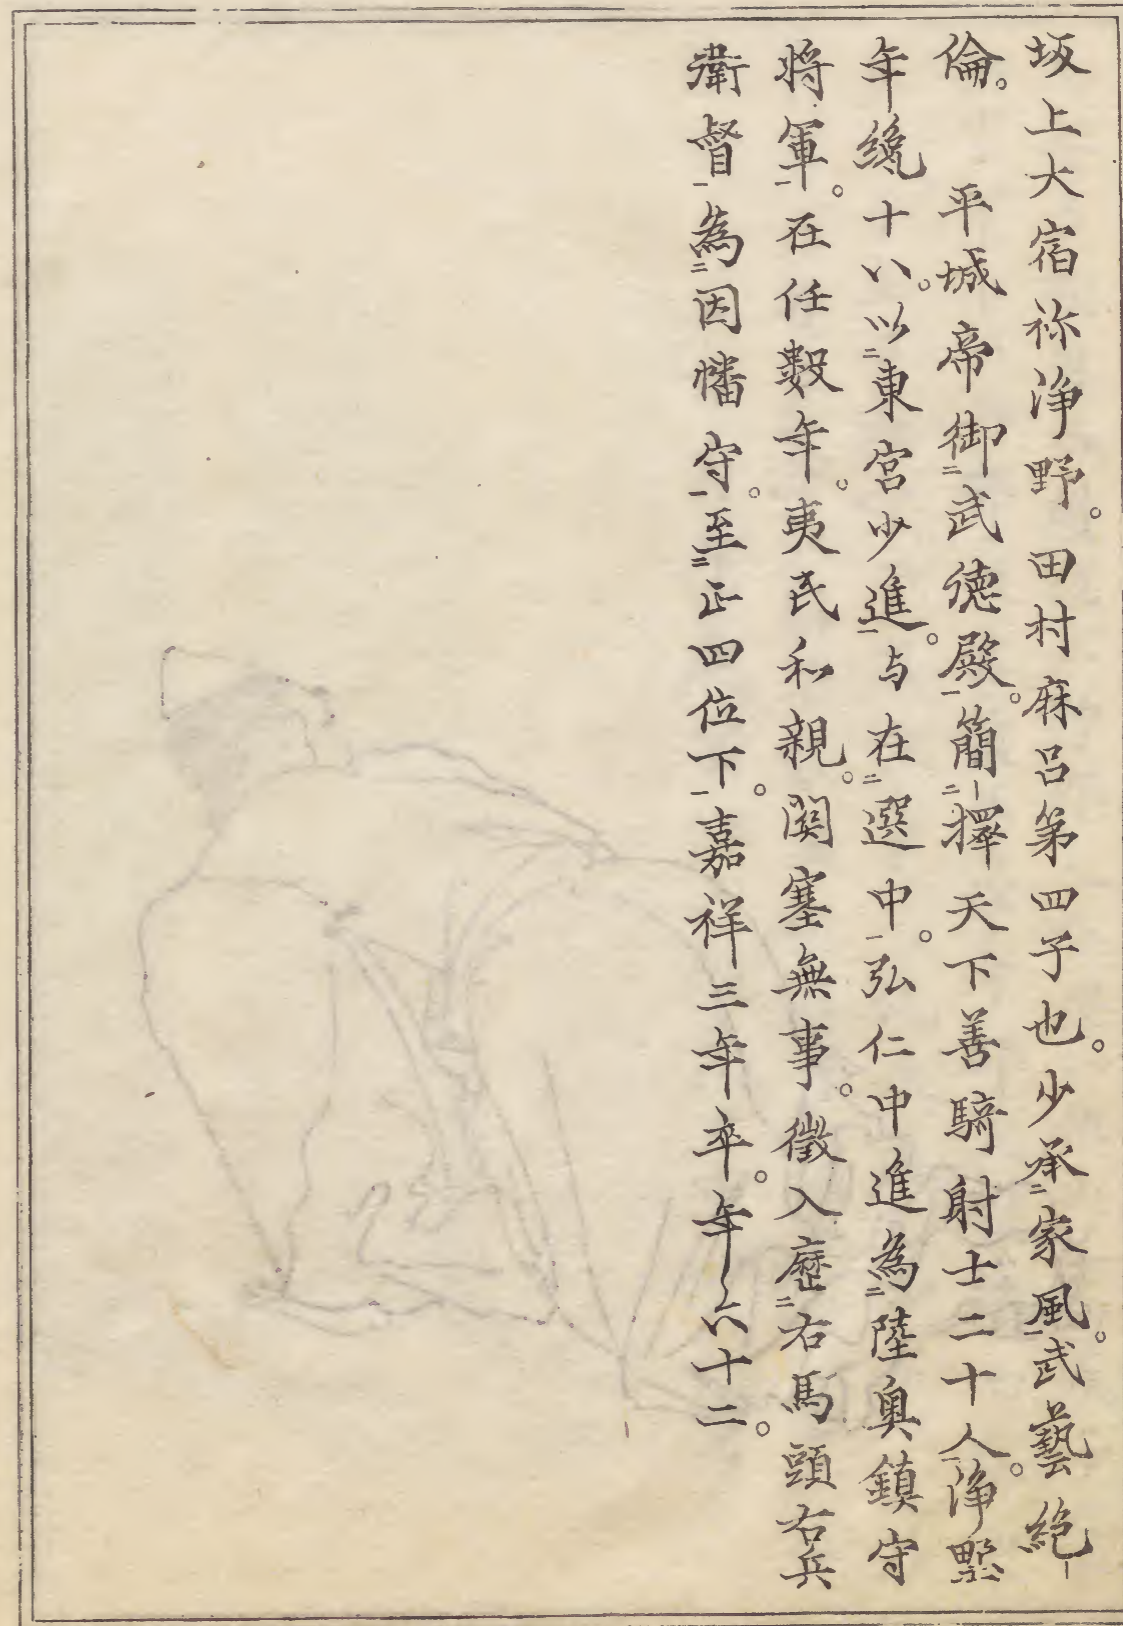 坂上大宿祢浄野。田村麻呂第四子也。少承二家風一。武藝絶
倫。　平城帝御二武徳殿一。簡二擇天下善騎射士二十人一。浄野
年纔十八。以二東宮少進一。与在二選中一。弘仁中進為二陸奥鎮守
将軍一。在任数年。夷民和親。関塞無事。徴入歴二右馬頭右兵
衛督一為二因幡守一。至二正四位下一。嘉祥三年卒。年六十二。